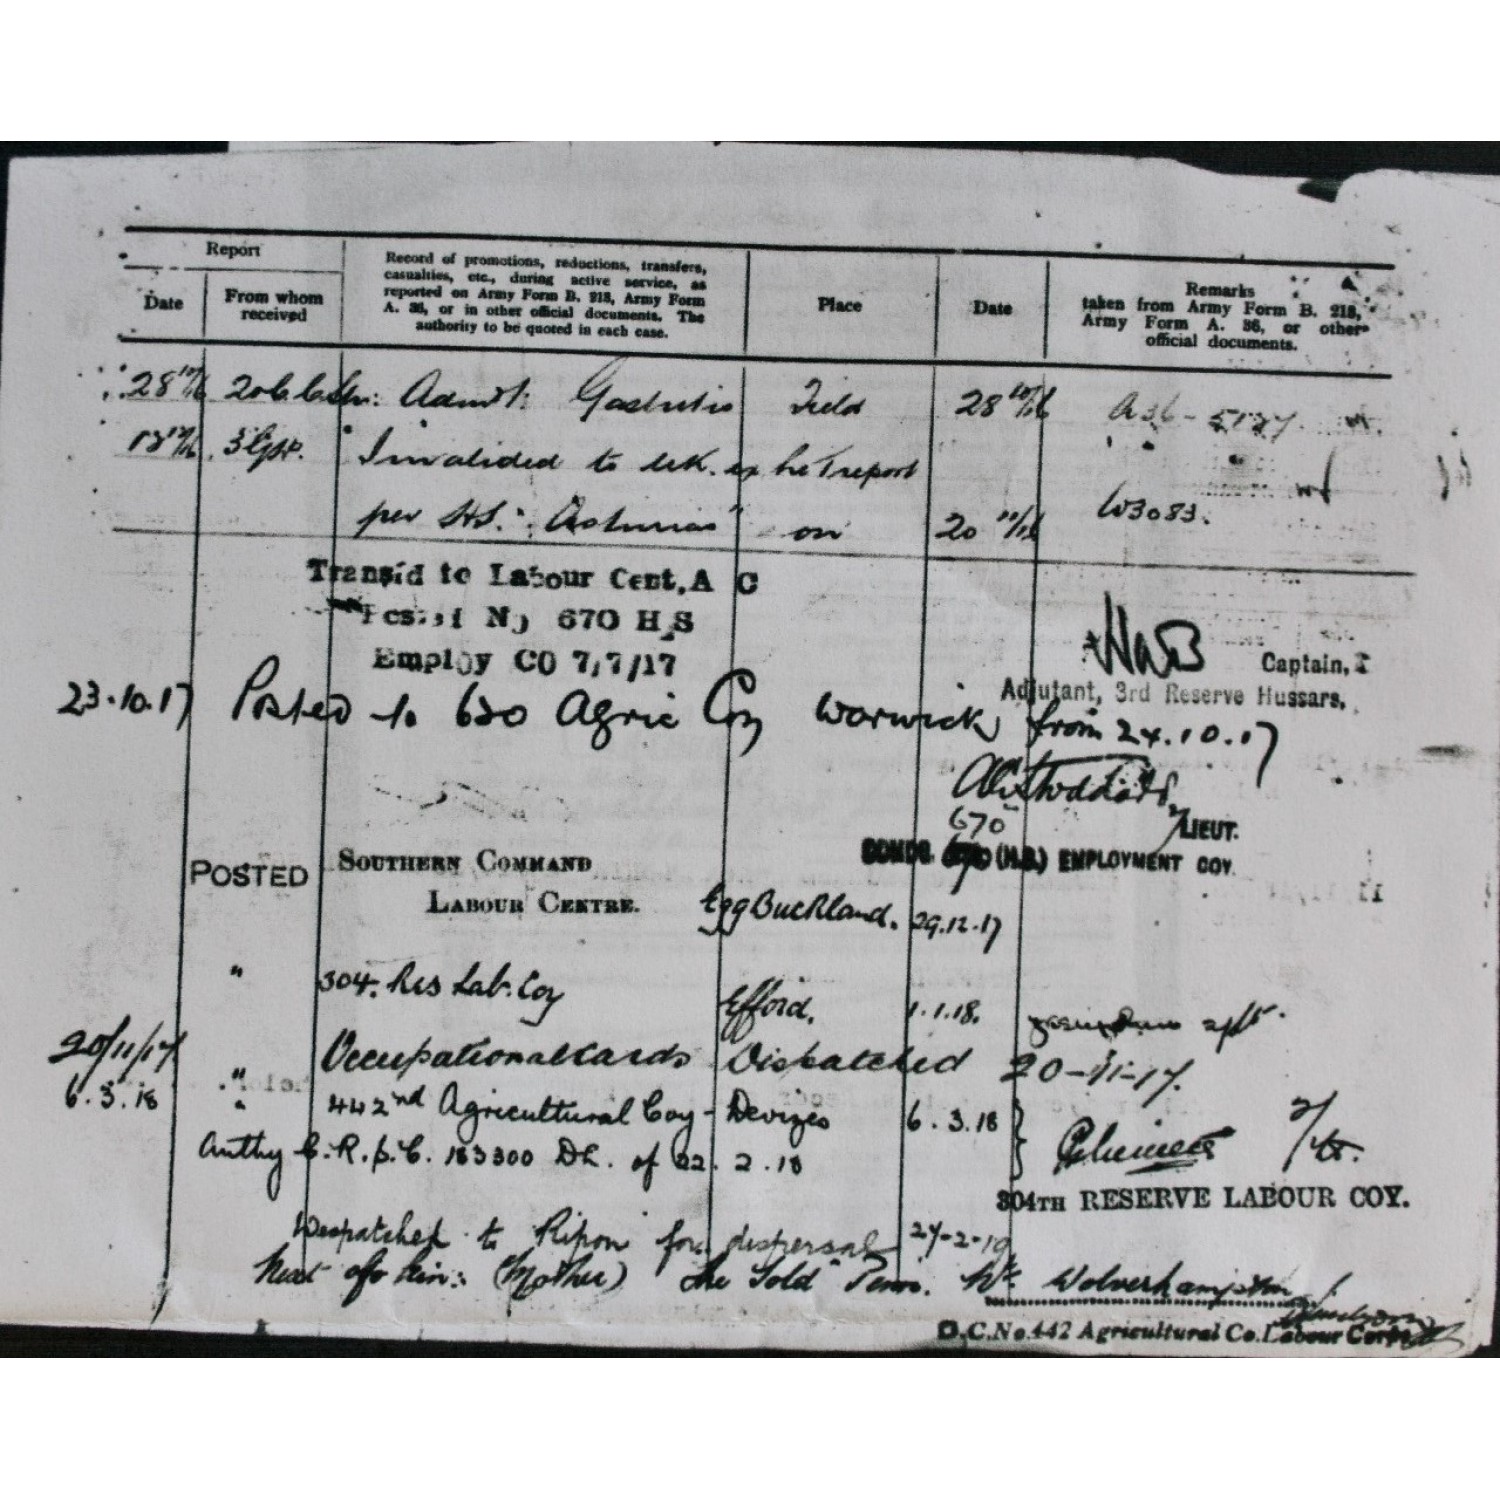 Report
Date
From whom received
Record of promotions, reductions, transfers, casualties, etc., during active service, as reported on Army Form B. 213, Army Form A. 36, or in other official documents. The authority to be quoted in each case.
Place
Date
Remarks taken from Army Form B. 213, Army Form A. 36, or other official documents.
28 10/16 Admit: Gastritis Field 28 10/16 A36 -
Invalided to UK. ex he Treport
per H.S. "Asturias" on 20 11/16 W3083.
Transf'd to Labour Cent, A C
Posted No 670 H S
Employ CO 7/7/17
Captain,
Adjutant, 3rd Reserve Hussars,
23.10.17 Posted to 630 Agric Coy Warwick from 24.10.17
670
2/LIEUT.
COMDG. 670 (H.S.) EMPLOYMENT COY.
POSTED SOUTHERN COMMAND
LABOUR CENTRE. Egg Buckland. 29.12.17
" 304. Res Lab. Coy Efford. 1.1.18.
20/11/17 " Occupational Cards Dispatched 20-11-17.
6.3.18 " 442nd Agricultural Coy - Devizes 6.3.18
Authy C.R. 183300 DL. of 22.2.18
2/Lt.
304TH RESERVE LABOUR COY.
Despatched to Ripon for dispersal 27-2-19
Next of kin: (Mother) Penn. Wolverhampton
O.C. No. 442 Agricultural Co. Labour Corps